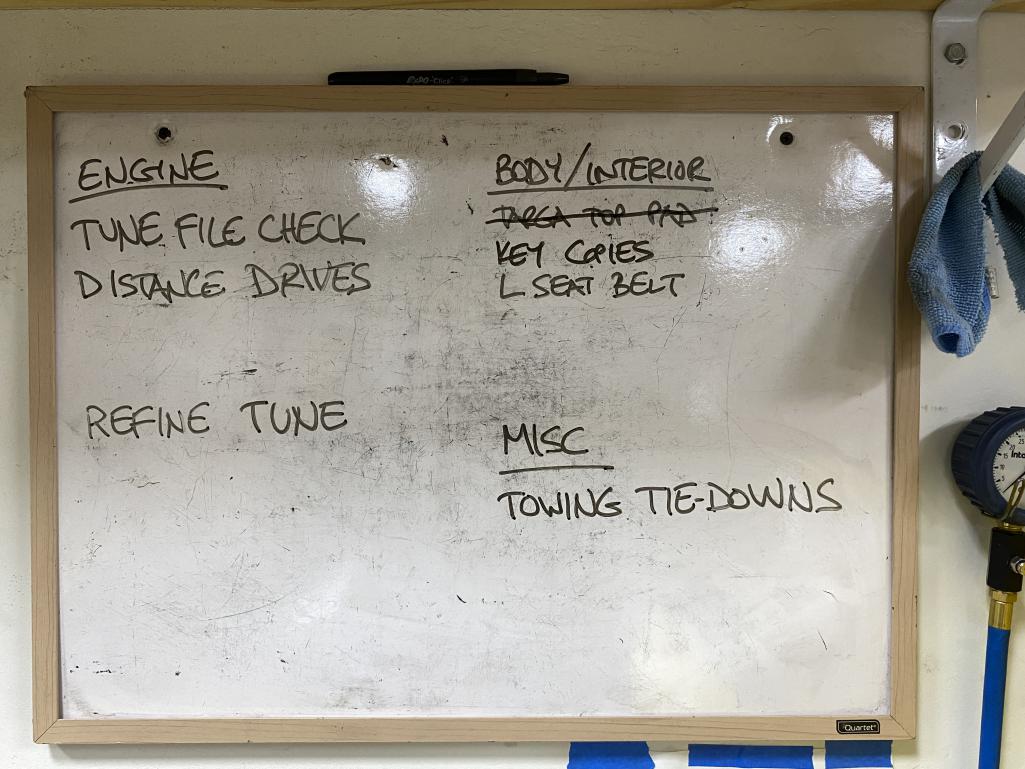 EXPO "Click"
ENGINE
TUNE FILE CHECK
DISTANCE DRIVES
REFINE TUNE
BODY/INTERIOR
TARGA TOP PAD
KEY COPIES
L SEAT BELT
MISC
TOWING TIE-DOWNS
Quartet